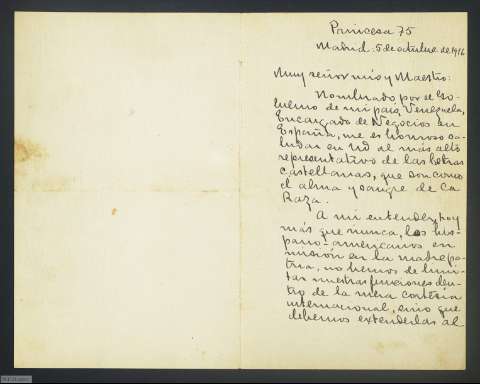 Princesa 75
Madrid. 5 de octubre de 1916
Muy señor mío y Maestro:
Nombrado por el Go-
bierno de mi país, Venezuela,
Encargado de Negocios en
España, me es honroso sa-
ludar en Ud al más alto
representativo de las letras
castellanas, que son como
el alma y sangre de la
Raza.
A mi entender, hoy
más que nunca, los his-
pano-americanos en
misión en la madre pa-
tria, no hemos de limi-
tar nuestras funciones den-
tro de la mera cortesía
internacional, sino que
debemos extenderlas al